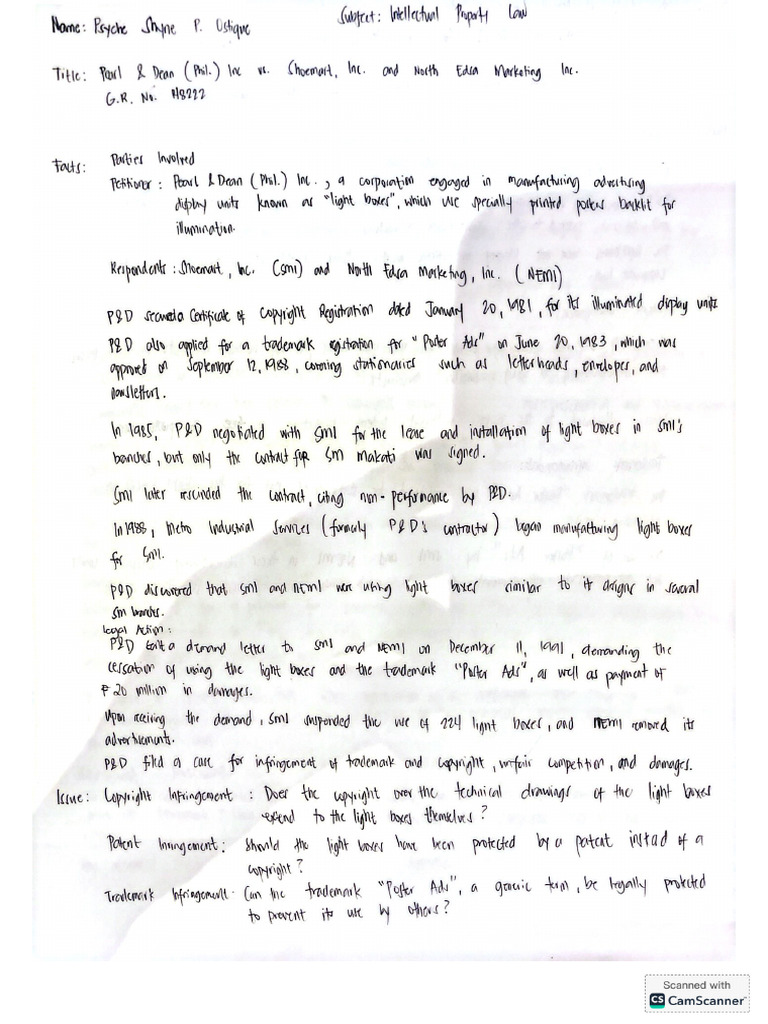 Name: Psyche Shyne P. Ostique
Subject: Intellectual Property Law
Title: Pearl & Dean (Phil.) Inc vs. Shoemart, Inc. and North Edsa Marketing Inc.
G.R. No. 148222
Facts: Parties Involved
Petitioner: Pearl & Dean (Phil.) Inc., a corporation engaged in manufacturing advertising
display units known as "light boxes", which use specially printed posters backlit for
illumination.
Respondents: Shoemart, Inc. (SMI) and North Edsa Marketing, Inc. (NEMI)
P&D secured a Certificate of Copyright Registration dated January 20, 1981, for its illuminated display units
P&D also applied for a trademark registration for "Poster Ads" on June 20, 1983, which was
approved on September 12, 1988, covering stationaries such as letterheads, envelopes, and
newsletters.
In 1985, P&D negotiated with SMI for the lease and installation of light boxes in SMI's
branches, but only the contract for SM Makati was signed.
SMI later rescinded the contract, citing non-performance by P&D.
In 1988, Metro Industrial Services (formerly P&D's contractor) began manufacturing light boxes
for SMI.
P&D discovered that SMI and NEMI were using light boxes similar to it designs in several
SM branches.
Legal Action:
P&D sent a demand letter to SMI and NEMI on December 11, 1991, demanding the
cessation of using the light boxes and the trademark "Poster Ads", as well as payment of
₱20 million in damages.
Upon receiving the demand, SMI suspended the use of 224 light boxes, and NEMI removed its
advertisements.
P&D filed a case for infringement of trademark and copyright, unfair competition, and damages.
Issue: Copyright Infringement: Does the copyright over the technical drawings of the light boxes
extend to the light boxes themselves?
Patent Infringement: Should the light boxes have been protected by a patent instead of a
copyright?
Trademark Infringement: Can the trademark "Poster Ads", a generic term, be legally protected
to prevent its use by others?
Scanned with
CS CamScanner